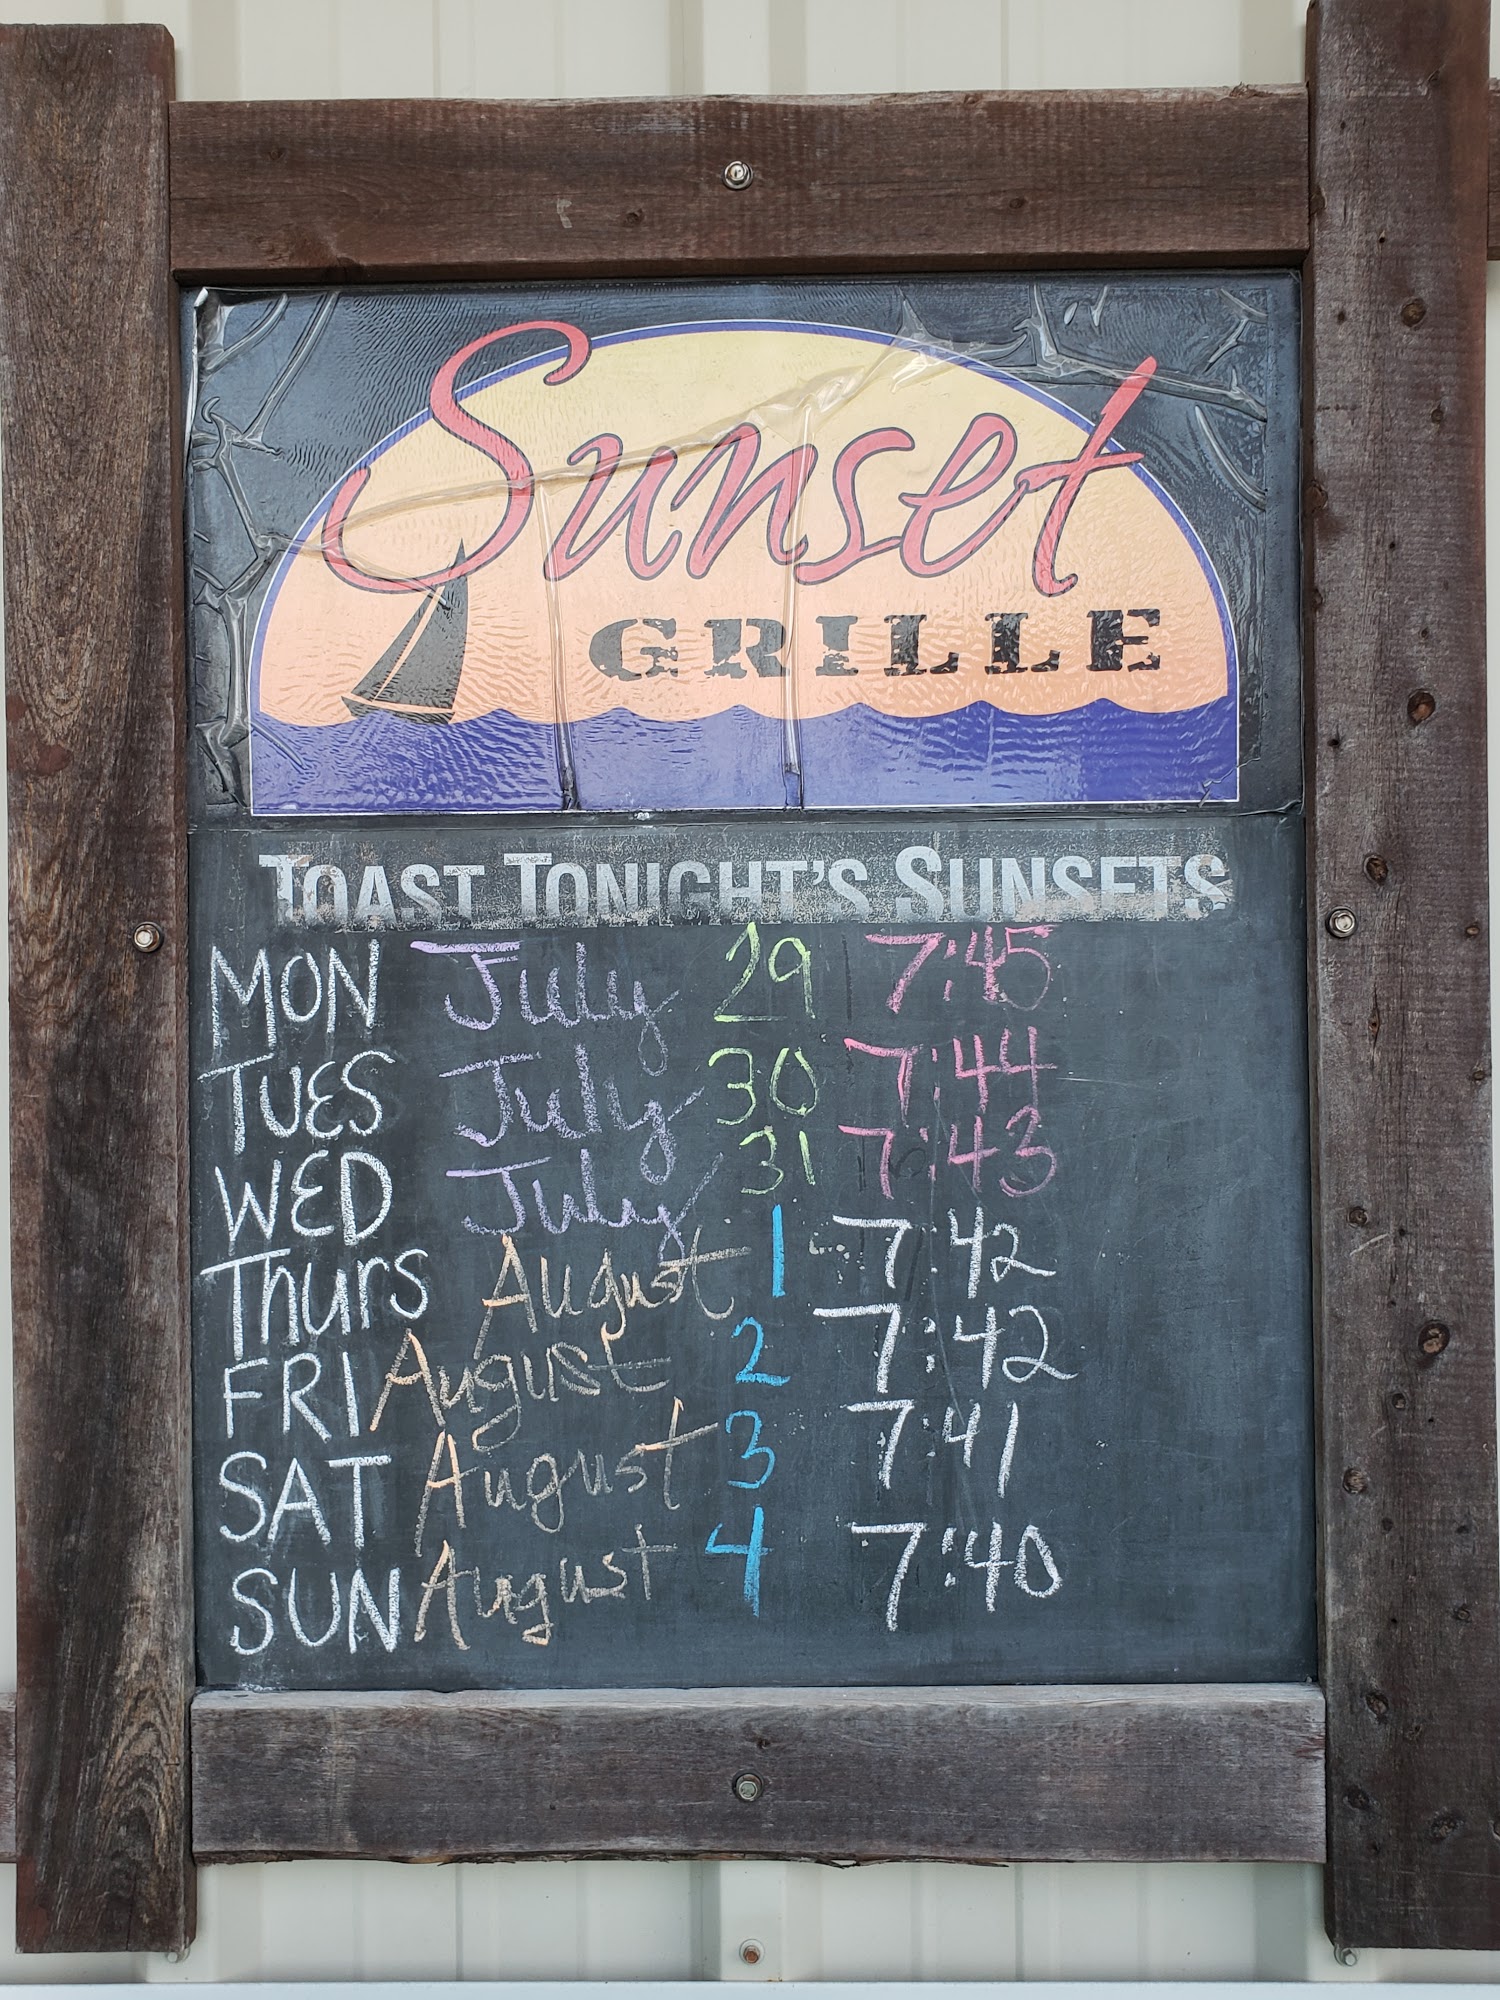 Sunset
GRILLE
TOAST TONIGHT'S SUNSETS
MON July 29 7:45
TUES July 30 7:44
WED July 31 7:43
Thurs August 1 7:42
FRI August 2 7:42
SAT August 3 7:41
SUN August 4 7:40